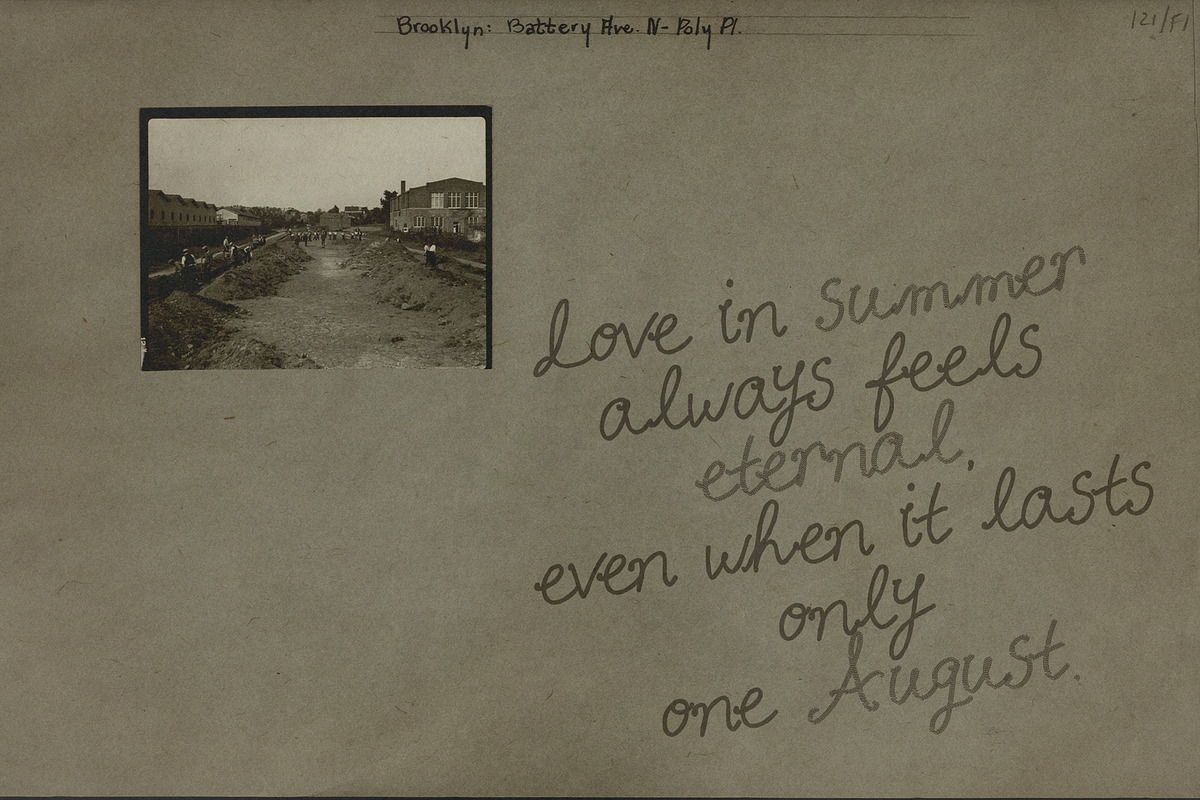 Brooklyn: Battery Ave. N- Poly Pl.
121/F1
Love in summer
always feels
eternal,
even when it lasts
only
one August.